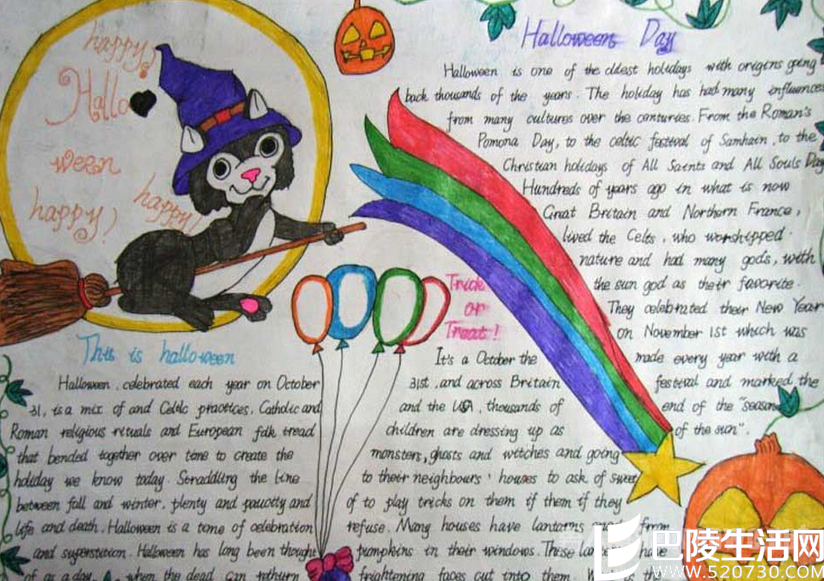 happy!
Hallo
ween
happy!
happy!
Halloween Day
Halloween is one of the oldest holidays with origins going
back thousands of the years. The holiday has had many influences
from many cultures over the centuries. From the Roman's
Pomona Day, to the celtic festival of Samhain, to the
Christian holidays of All Saints and All Souls Day
Hundreds of years ago in what is now
Great Britain and Northern France,
lived the Celts, who worshipped
nature and had many gods, with
the sun god as their favorite.
They celebrated their New Year
on November 1st which was
made every year with a
festival and marked the
end of the "season
of the sun".
This is halloween
Halloween, celebrated each year on October
31, is a mix of and Celtic practices, Catholic and
Roman religious rituals and European folk tread
that bended together over time to create the
holiday we know today. Sraddling the line
between fall and winter, plenty and paucity and
life and death, Halloween is a tome of celebration
and superstition. Halloween has long been thought
of as a day when the dead can return
Trick
or
Treat!
It's a October the
31st, and across Britain
and the USA, thousands of
children are dressing up as
monsters, ghosts and witches and going
to their neighbours' houses to ask of sweet
of to play tricks on them if them if they
refuse. Many houses have lanterns from
pumpkins in their windows. These have
frightening faces cut into them
巴陵生活网
www.520730.com